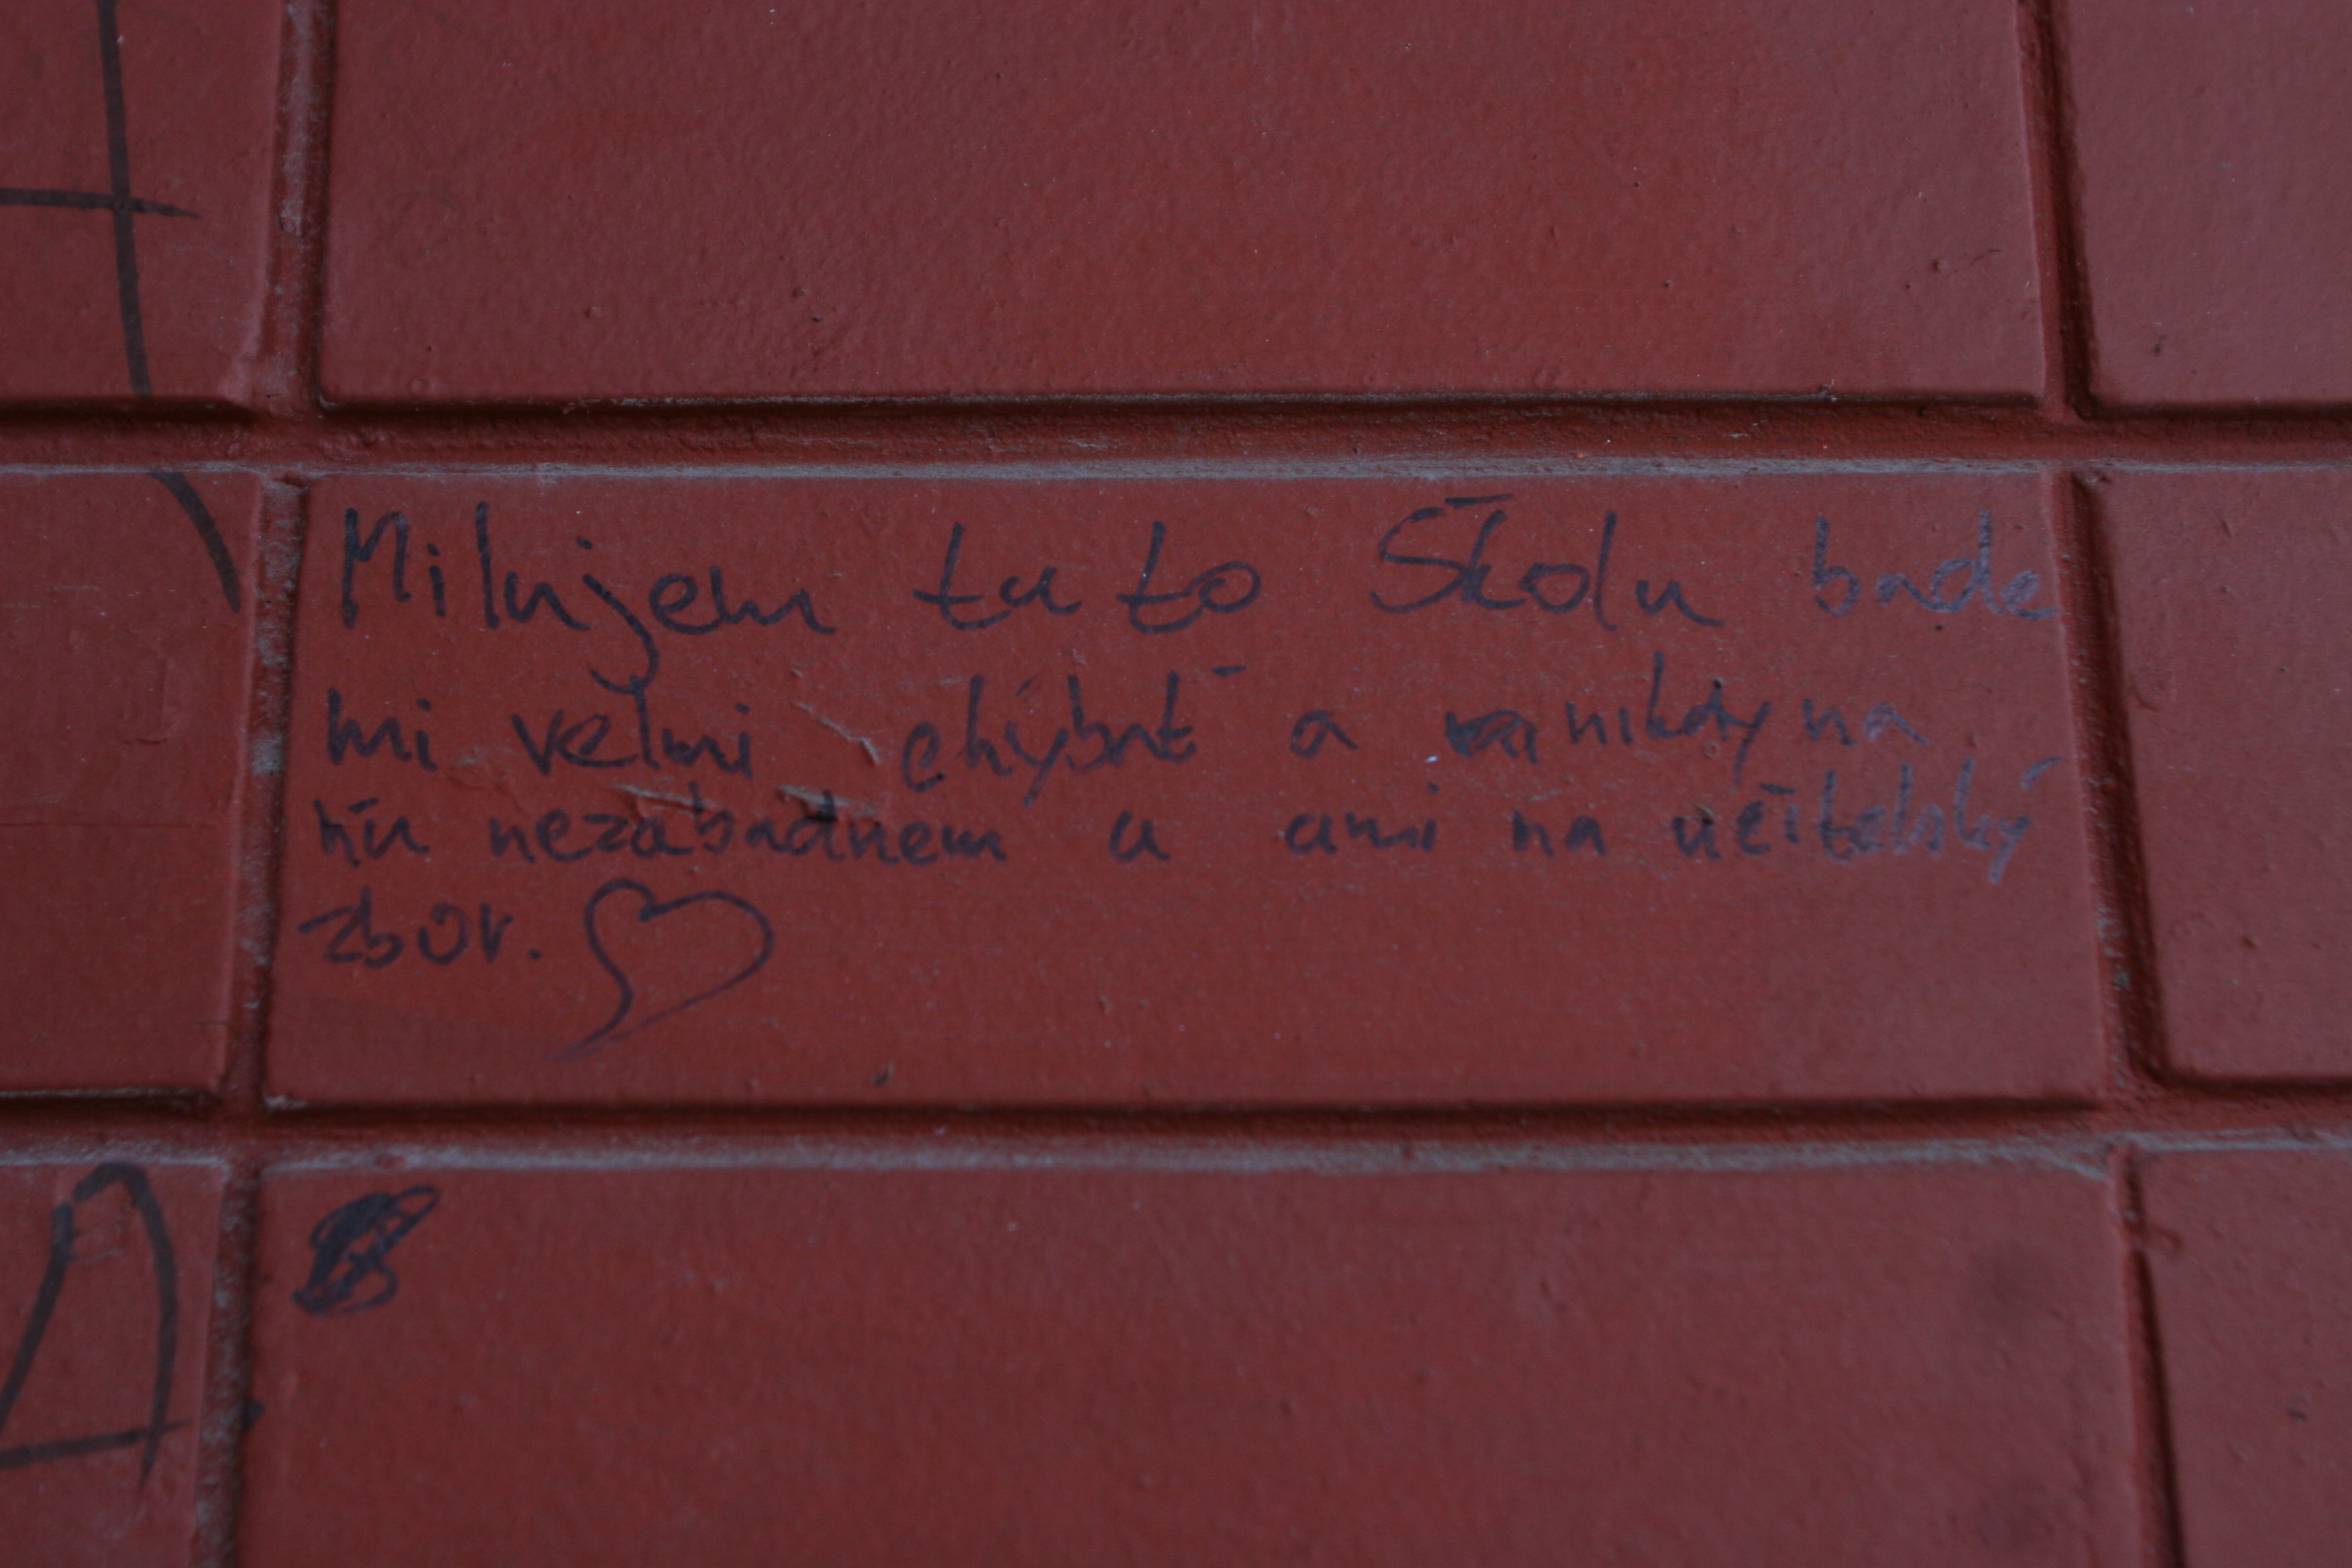 Milujem tu to Školu bude
mi velmi chýbať a nikdy na
ňu nezabudnem a ani na učitelský
zbor.
A